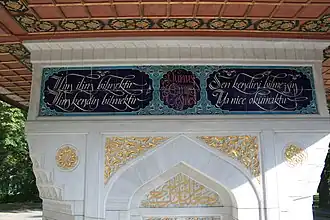 İlim ilim bilmektir
İlim kendin bilmektir
Yunus
Emre
Sen kendini bilmezsin
Ya nice okumaktır